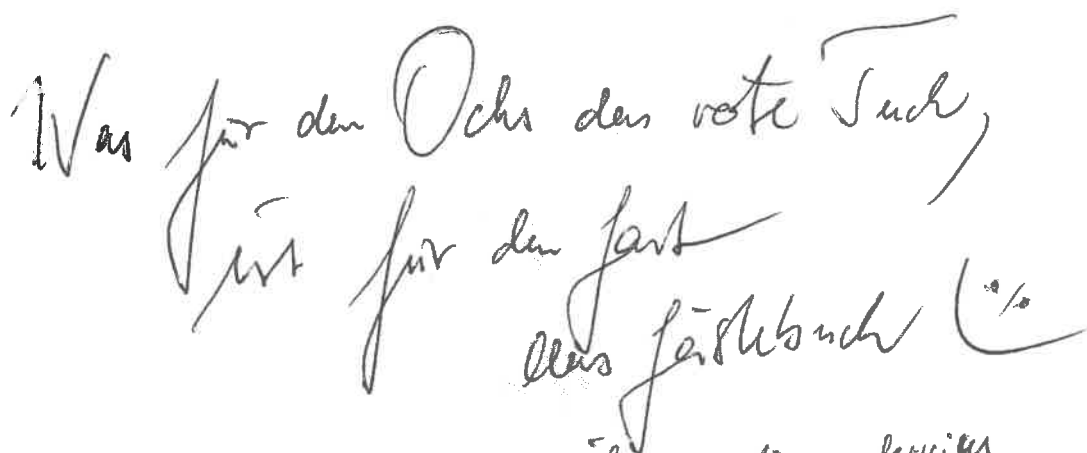 Was für den Ochs das rote Tuch,
ist für den Gast
das Gästebuch